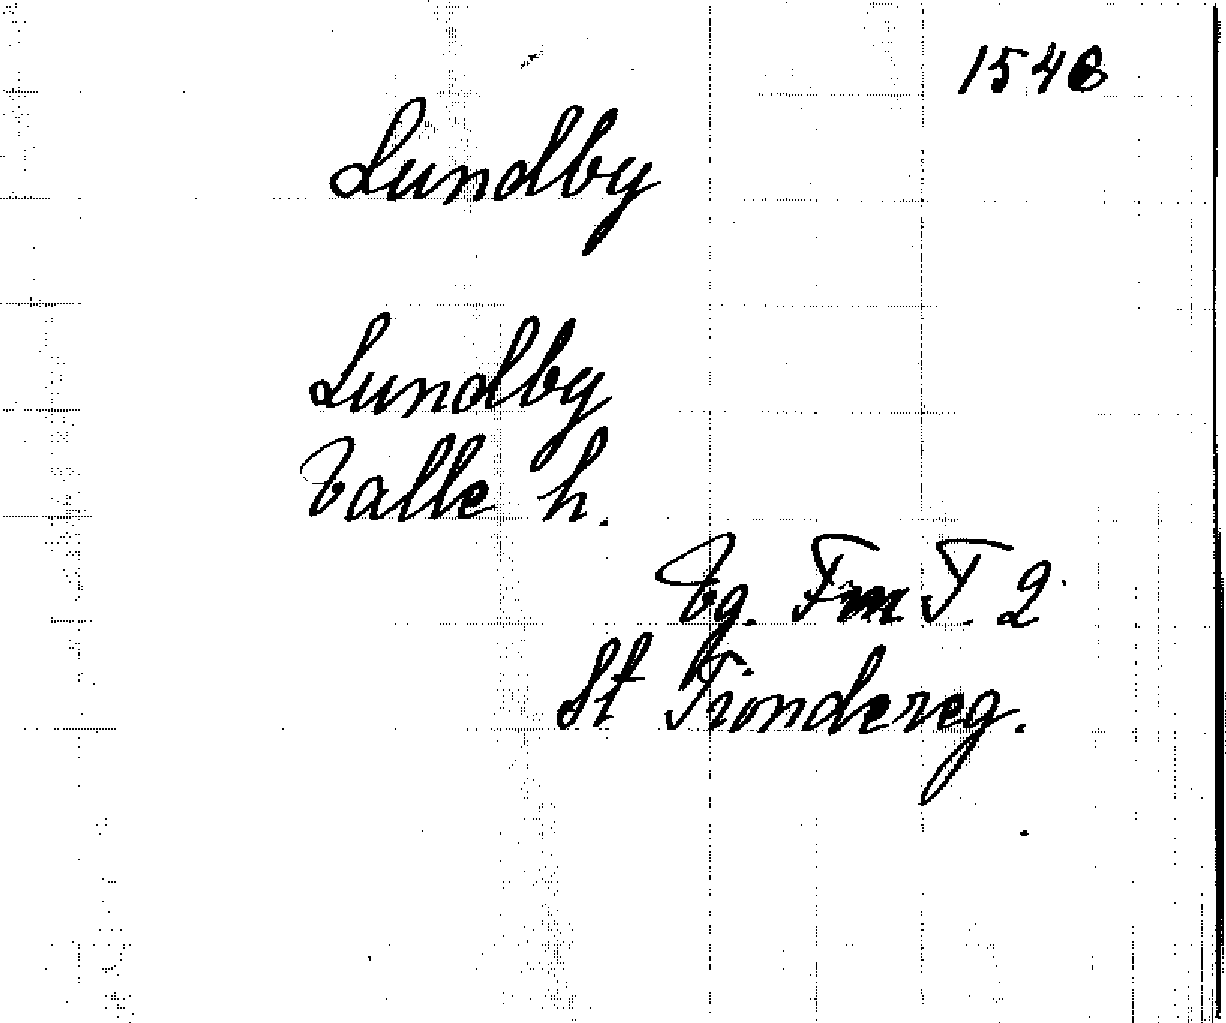 Lundby
Lundby
Valle h.
Vg. Fm T. 2
St Tiondereg.